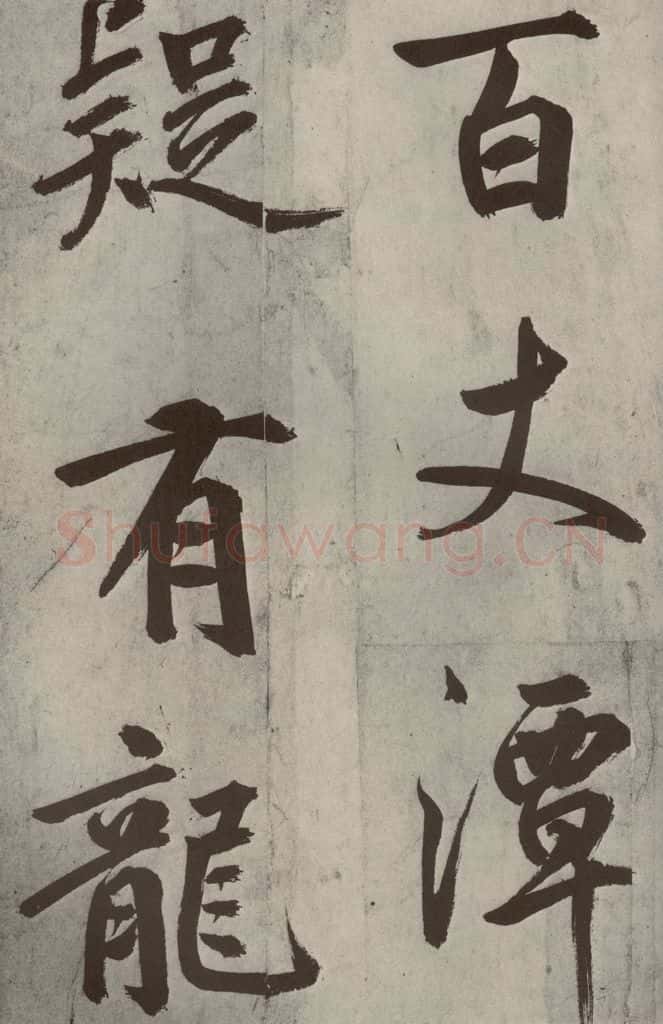 百丈潭
疑有龍
Shufawang.CN